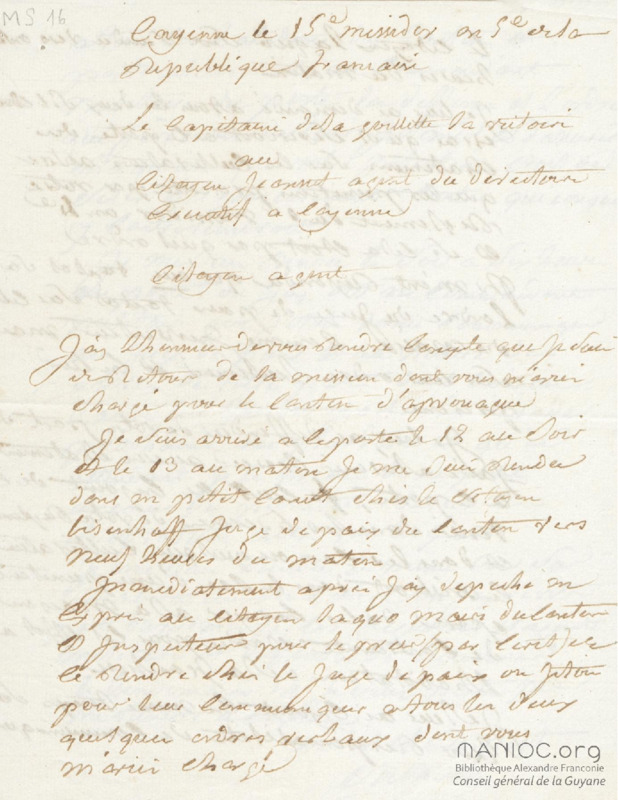 MS 16
Cayenne le 15e messidor an 5e de la
Republique francaise
Le Capitaine de la goillette la victoire
au
Citoyen Jeannet agent du directoire
Executif a Cayenne
Citoyen agent
J'ay L'honneur de vous Rendre Compte que je suis
de Retour de la mission dont vous m'aviez
chargé pour le Canton d'aprouague
Je suis arrivé a le poste le 12 au Soir
et le 13 au maten Je me suis Rendu
dans m petit Canot chéz le citoyen
Juge de paix du Canton vers
neuf heures du maten
Immediatement aprés J'ay depeche un
Exprés au citoyen maire du Canton
et Inspecteur pour le (par Ecrit) de
Ce Rendre chéz le Juge de paix ou J'eton
pour leur Communiquer a tous les deux
quelques ordres verbaux dont vous
m'aviez chargé
MANIOC.org
Bibliothèque Alexandre Franconie
Conseil général de la Guyane